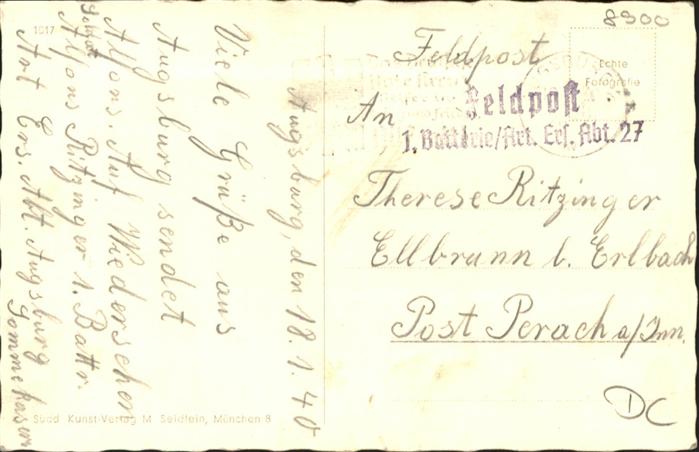 8900
1617
Augsburg, den 18.1.40
Viele Grüße aus
Augsburg sendet
Alfons. Auf Wiedersehen
Soldat
Alfons Ritzinger 1. Battr.
Art Ers. Abt. Augsburg
Sommekasern
Feldpost
Echte
Fotografie
Feldpost
An
1. Batterie/Art. Ers. Abt. 27
Therese Ritzinger
Ellbrunn b. Erlbach
Post Perach a/Inn.
DC
Südd. Kunst-Verlag M. Seidlein, München 8